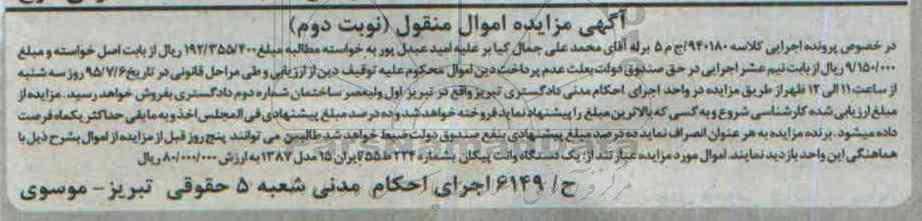 آگهی مزایده اموال منقول (نوبت دوم)
در خصوص پرونده اجرایی کلاسه ۹۴۰۱۸۰/ج م ۵ برله آقای محمد علی جمال کیا بر علیه امید عبدل پور به خواسته مطالبه مبلغ ۱۹۲/۳۵۵/۴۰۰ ریال از بابت اصل خواسته و مبلغ
۹/۱۵۰/۰۰۰ ریال از بابت نیم عشر اجرایی در حق صندوق دولت بعلت عدم پرداخت دین اموال محکوم علیه توقیف دین از ارزیابی و طی مراحل قانونی در تاریخ ۹۵/۷/۶ روز سه شنبه
از ساعت ۱۱ الی ۱۲ ظهر از طریق مزایده در واحد اجرای احکام مدنی دادگستری تبریز واقع در تبریز اول ولیعصر ساختمان شماره دوم دادگستری بفروش خواهد رسید. مزایده از
مبلغ ارزیابی شده کارشناسی شروع و به کسی که بالاترین مبلغ را پیشنهاد نماید فروخته خواهد شد و ده درصد مبلغ پیشنهادی فی المجلس اخذ و به مابقی حداکثر یکماه فرصت
داده میشود. برنده مزایده به هر عنوان انصراف نماید ده درصد مبلغ پیشنهادی بنفع صندوق دولت ضبط خواهد شد طالبین می توانند پنج روز قبل از مزایده از اموال بشرح ذیل با
هماهنگی این واحد بازدید نمایند. اموال مورد مزایده عبارتند از: یک دستگاه وانت پیکان بشماره ۲۳۴ ط ۷۵۵ ایران ۱۵ مدل ۱۳۸۷ به ارزش ۸۰/۰۰۰/۰۰۰ ریال
ح/۶۱۴۹ اجرای احکام مدنی شعبه ۵ حقوقی تبریز - موسوی